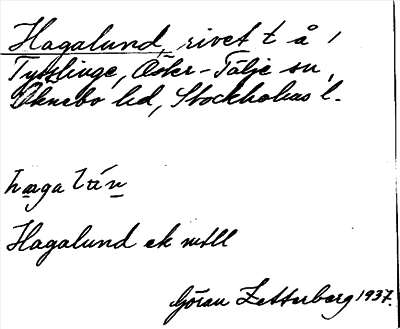 Hagalund, rivet t å 1
Tysslinge, Öster-Tälje sn,
Öknebo hd, Stockholms l.
Hagalund ek mtll
Göran Zetterberg 1937.